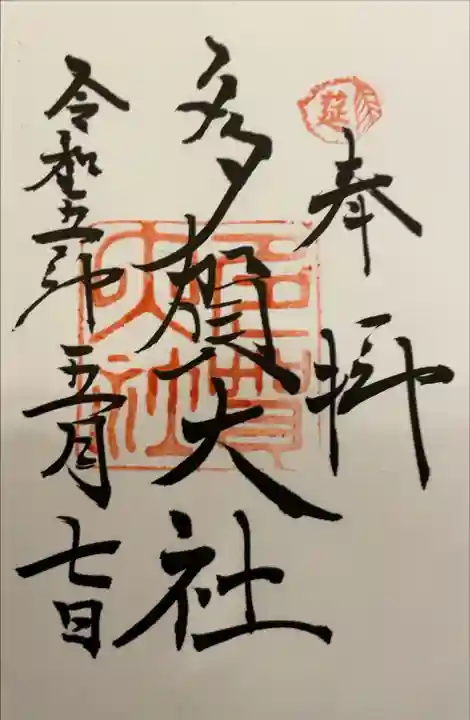 奉拝
莚
多賀大社
多賀大社
令和五年五月七日